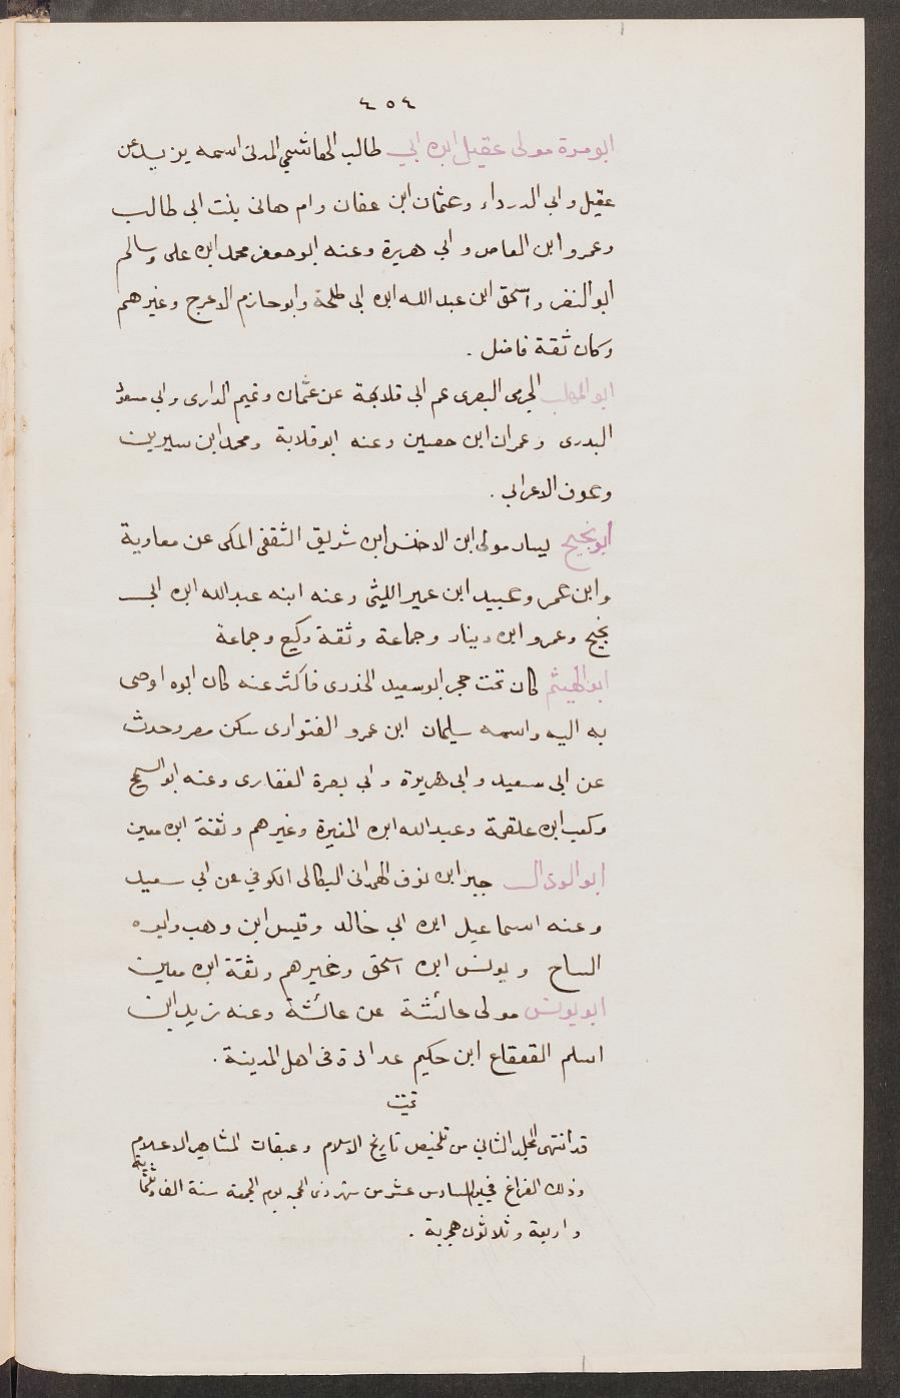 ٤٥٤
ابو مرة مولى عقيل ابن ابي طالب الهاشمي المدنى اسمه يزيد عن
عقيل وابي الدرداء وعثمان ابن عفان وام هانى بنت ابى طالب
وعمرو ابن العاص وابي هريرة وعنه ابو جعفر محمد ابن على وسالم
ابو النضر واسحق ابن عبد الله ابن ابى طلحة وابو حازم الاعرج وغيرهم
وكان ثقة فاضل .
ابو المهلب الجرمى البصرى عم ابى قلابة عن عثمان وتميم الدارى وابى مسعود
البدرى وعمران ابن حصين وعنه ابو قلابة ومحمد ابن سيرين
وعوف الاعرابي .
ابو نجيح يسار مولى ابن الاخنس ابن شريق الثقفى المكى عن معاوية
وابن عمر وعبيد ابن عمير الليثى وعنه ابنه عبد الله ابن ابى
نجيح وعمرو ابن دينار وجماعة وثقة وكيع وجماعة
ابو الهيثم كان تحت حجر ابو سعيد الخدرى فاكثر عنه كان ابوه اوصى
به اليه واسمه سليمان ابن عمرو الفتوارى سكن مصر وحدث
عن ابى سعيد وابى هريرة وابي بصرة الغفارى وعنه ابو السمح
وكعب ابن علقمة وعبد الله ابن المغيرة وغيرهم وثقة ابن معين
ابو الوداك جبر ابن نوف الهمدانى البكالى الكوفي عن ابي سعيد
وعنه اسماعيل ابن ابي خالد وقيس ابن وهب وابوه
الساح ويونس ابن اسحق وغيرهم وثقة ابن معين
ابو يونس مولى عائشة عن عائشة وعنه زيد ابن
اسلم القعقاع ابن حكيم عداده فى اهل المدينة .
تمت
قد انتهى المجلد الثاني من تلخيص تاريخ الاسلام وعبقات المشاهير الاعلام
وذلك الفراغ في يوم السادس عشر من شهر ذى الحجه يوم الجمعة سنة الف وثلثمائة
واربعة وثلاثون هجرية .